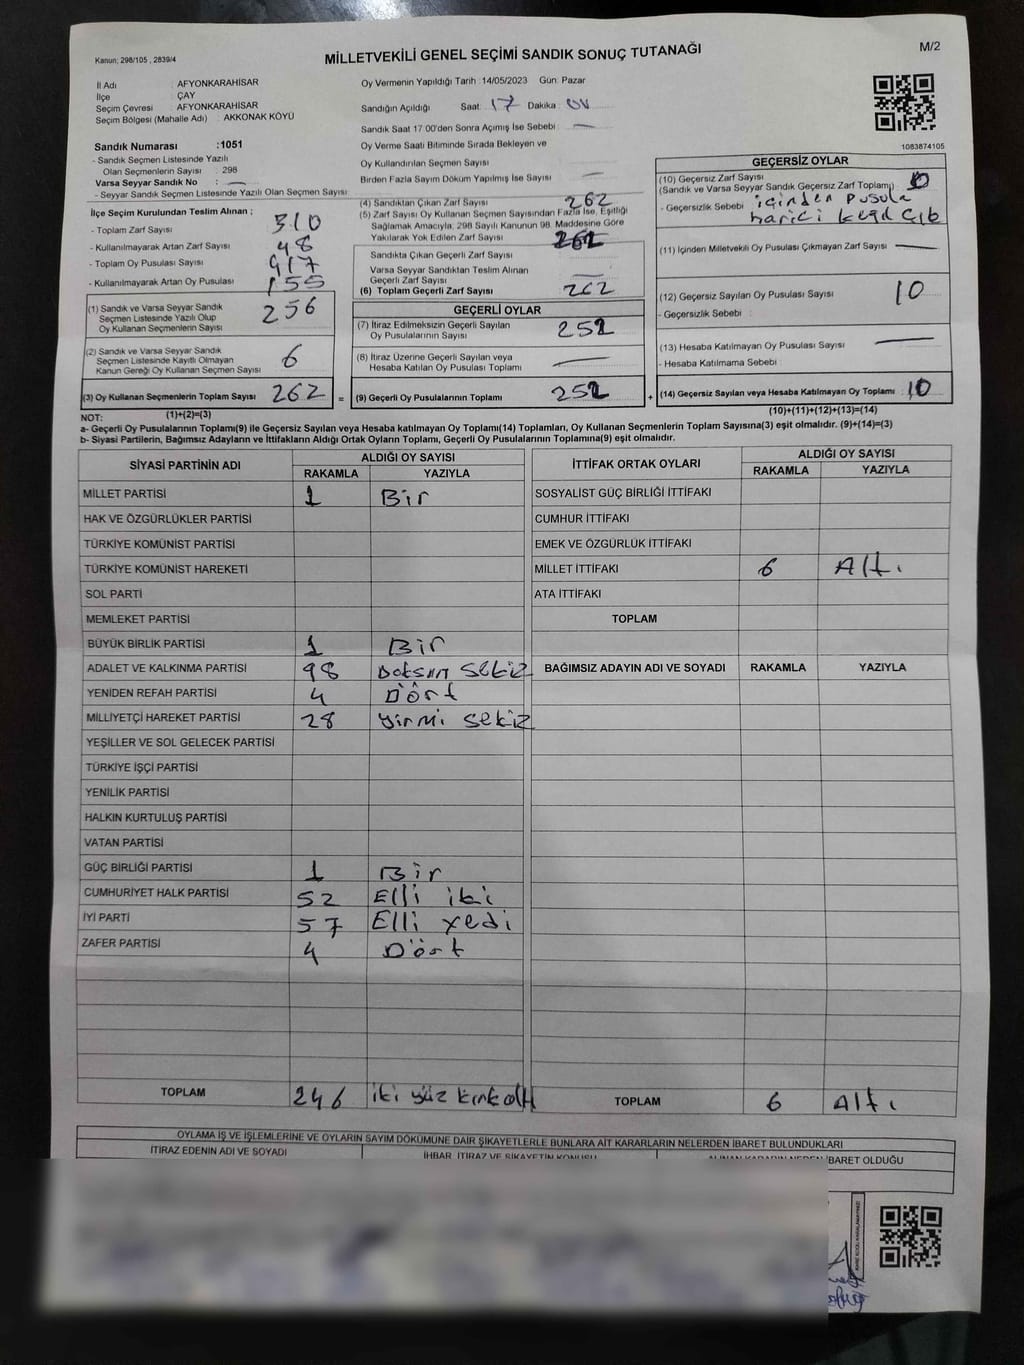 Kanun: 298/105 , 2839/4
MİLLETVEKİLİ GENEL SEÇİMİ SANDIK SONUÇ TUTANAĞI
M/2
İl Adı : AFYONKARAHİSAR
İlçe : ÇAY
Seçim Çevresi : AFYONKARAHİSAR
Seçim Bölgesi (Mahalle Adı) : AKKONAK KÖYÜ
Sandık Numarası :1051
- Sandık Seçmen Listesinde Yazılı
Olan Seçmenlerin Sayısı : 298
Varsa Seyyar Sandık No : —
- Seyyar Sandık Seçmen Listesinde Yazılı Olan Seçmen Sayısı:
İlçe Seçim Kurulundan Teslim Alınan ;
- Toplam Zarf Sayısı 310
- Kullanılmayarak Artan Zarf Sayısı 48
- Toplam Oy Pusulası Sayısı 417
- Kullanılmayarak Artan Oy Pusulası 155
(1) Sandık ve Varsa Seyyar Sandık
Seçmen Listesinde Yazılı Olup
Oy Kullanan Seçmenlerin Sayısı 256
(2) Sandık ve Varsa Seyyar Sandık
Seçmen Listesinde Kayıtlı Olmayan
Kanun Gereği Oy Kullanan Seçmen Sayısı 6
(3) Oy Kullanan Seçmenlerin Toplam Sayısı 262
(1)+(2)=(3)
Oy Vermenin Yapıldığı Tarih :14/05/2023 Gün: Pazar
Sandığın Açıldığı Saat: 17 Dakika :
Sandık Saat 17:00'den Sonra Açımış İse Sebebi : —
Oy Verme Saati Bitiminde Sırada Bekleyen ve
Oy Kullandırılan Seçmen Sayısı : —
Birden Fazla Sayım Döküm Yapılmış İse Sayısı : —
(4) Sandıktan Çıkan Zarf Sayısı 262
(5) Zarf Sayısı Oy Kullanan Seçmen Sayısından Fazla İse, Eşitliği
Sağlamak Amacıyla, 298 Sayılı Kanunun 98. Maddesine Göre
Yakılarak Yok Edilen Zarf Sayısı
Sandıkta Çıkan Geçerli Zarf Sayısı
Varsa Seyyar Sandıktan Teslim Alınan
Geçerli Zarf Sayısı —
(6) Toplam Geçerli Zarf Sayısı 262
GEÇERLİ OYLAR
(7) İtiraz Edilmeksizin Geçerli Sayılan
Oy Pusulalarının Sayısı 252
(8) İtiraz Üzerine Geçerli Sayılan veya
Hesaba Katılan Oy Pusulası Toplamı —
= (9) Geçerli Oy Pusulalarının Toplamı 252 +
1083874105
GEÇERSİZ OYLAR
(10) Geçersiz Zarf Sayısı
(Sandık ve Varsa Seyyar Sandık Geçersiz Zarf Toplamı)
- Geçersizlik Sebebi : içinden pusula
harici keğıt çıb
(11) İçinden Milletvekili Oy Pusulası Çıkmayan Zarf Sayısı —
(12) Geçersiz Sayılan Oy Pusulası Sayısı 10
- Geçersizlik Sebebi :
(13) Hesaba Katılmayan Oy Pusulası Sayısı —
- Hesaba Katılmama Sebebi :
(14) Geçersiz Sayılan veya Hesaba Katılmayan Oy Toplamı 10
(10)+(11)+(12)+(13)=(14)
NOT:
a- Geçerli Oy Pusulalarının Toplamı(9) ile Geçersiz Sayılan veya Hesaba katılmayan Oy Toplamı(14) Toplamları, Oy Kullanan Seçmenlerin Toplam Sayısına(3) eşit olmalıdır. (9)+(14)=(3)
b- Siyasi Partilerin, Bağımsız Adayların ve İttifakların Aldığı Ortak Oyların Toplamı, Geçerli Oy Pusulalarının Toplamına(9) eşit olmalıdır.
SİYASİ PARTİNİN ADI ALDIĞI OY SAYISI
RAKAMLA YAZIYLA
MİLLET PARTİSİ 1 Bir
HAK VE ÖZGÜRLÜKLER PARTİSİ
TÜRKİYE KOMÜNİST PARTİSİ
TÜRKİYE KOMÜNİST HAREKETİ
SOL PARTİ
MEMLEKET PARTİSİ
BÜYÜK BİRLİK PARTİSİ 1 Bir
ADALET VE KALKINMA PARTİSİ 98 Doksan sekiz
YENİDEN REFAH PARTİSİ 4 Dört
MİLLİYETÇİ HAREKET PARTİSİ 28 yirmi sekiz
YEŞİLLER VE SOL GELECEK PARTİSİ
TÜRKİYE İŞÇİ PARTİSİ
YENİLİK PARTİSİ
HALKIN KURTULUŞ PARTİSİ
VATAN PARTİSİ
GÜÇ BİRLİĞİ PARTİSİ 1 Bir
CUMHURİYET HALK PARTİSİ 52 Elli iki
İYİ PARTİ 57 Elli yedi
ZAFER PARTİSİ 4 Dört
TOPLAM 246 iki yüz kırk altı
İTTİFAK ORTAK OYLARI ALDIĞI OY SAYISI
RAKAMLA YAZIYLA
SOSYALİST GÜÇ BİRLİĞİ İTTİFAKI
CUMHUR İTTİFAKI
EMEK VE ÖZGÜRLÜK İTTİFAKI
MİLLET İTTİFAKI 6 Altı
ATA İTTİFAKI
TOPLAM
BAĞIMSIZ ADAYIN ADI VE SOYADI RAKAMLA YAZIYLA
TOPLAM 6 Altı
OYLAMA İŞ VE İŞLEMLERİNE VE OYLARIN SAYIM DÖKÜMÜNE DAİR ŞİKAYETLERLE BUNLARA AİT KARARLARIN NELERDEN İBARET BULUNDUKLARI
İTİRAZ EDENİN ADI VE SOYADI İHBAR, İTİRAZ VE ŞİKAYETİN KONUSU ALINAN KARARIN NEDEN İBARET OLDUĞU